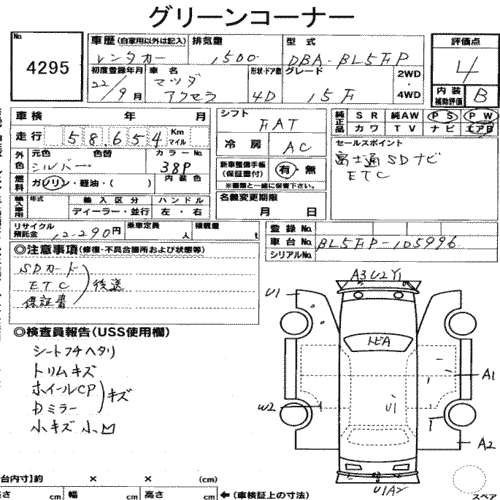 グリーンコーナー
No. 4295
車歴 (自家用以外は記入) レンタカー 排気量 1500 型式 DBA-BL5FP 評価点 4
初度登録年月 22/9月 車名 マツダ アクセラ 形状・ドア数 4D グレード 15F 2WD・4WD 内装補助評価 B
車検 年 月 シフト FAT 純正品 SR 純AW PS PW
走行 58,654 Km マイル 冷房 AC カワ TV ナビ エアB
外色 元色 シルバー 色替 38P セールスポイント
燃料 ガソリン・軽油・( ) 内装色 新車整備手帳(保証書付) 有・無 富士通SDナビ
※書類と一緒に保管下さい。 ETC
輸入車用 年式 輸入区分 ハンドル 名義変更期限
ディーラー・並行 左・右 月 日
リサイクル預託金 12290円 乗車定員 人 積載量 t 登録No.
車台No. BL5FP-105996
シリアルNo.
◎注意事項(修復・不具合箇所および状態等)
SDカード
ETC 後送
保証書
◎検査員報告(USS使用欄)
シートフチヘタリ
トリムキズ
ホイールCP キズ
Dミラー
小キズ 小凹
A3U2Y1
U1
トビA
A1
W2
U1
A2
U1A2
スペア
台内寸)約 × × (cm)
さ cm 幅 cm 高さ cm ←(車検証上の寸法)